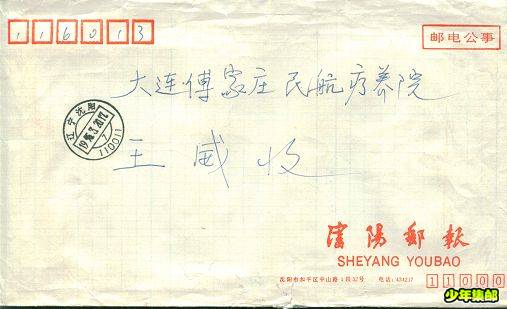 116013
邮电公事
大连傅家庄民航疗养院
辽宁沈阳
110011
王威收
瀋陽郵報
SHEYANG YOUBAO
沈阳市和平区中山路 电话:
11000
少年集邮